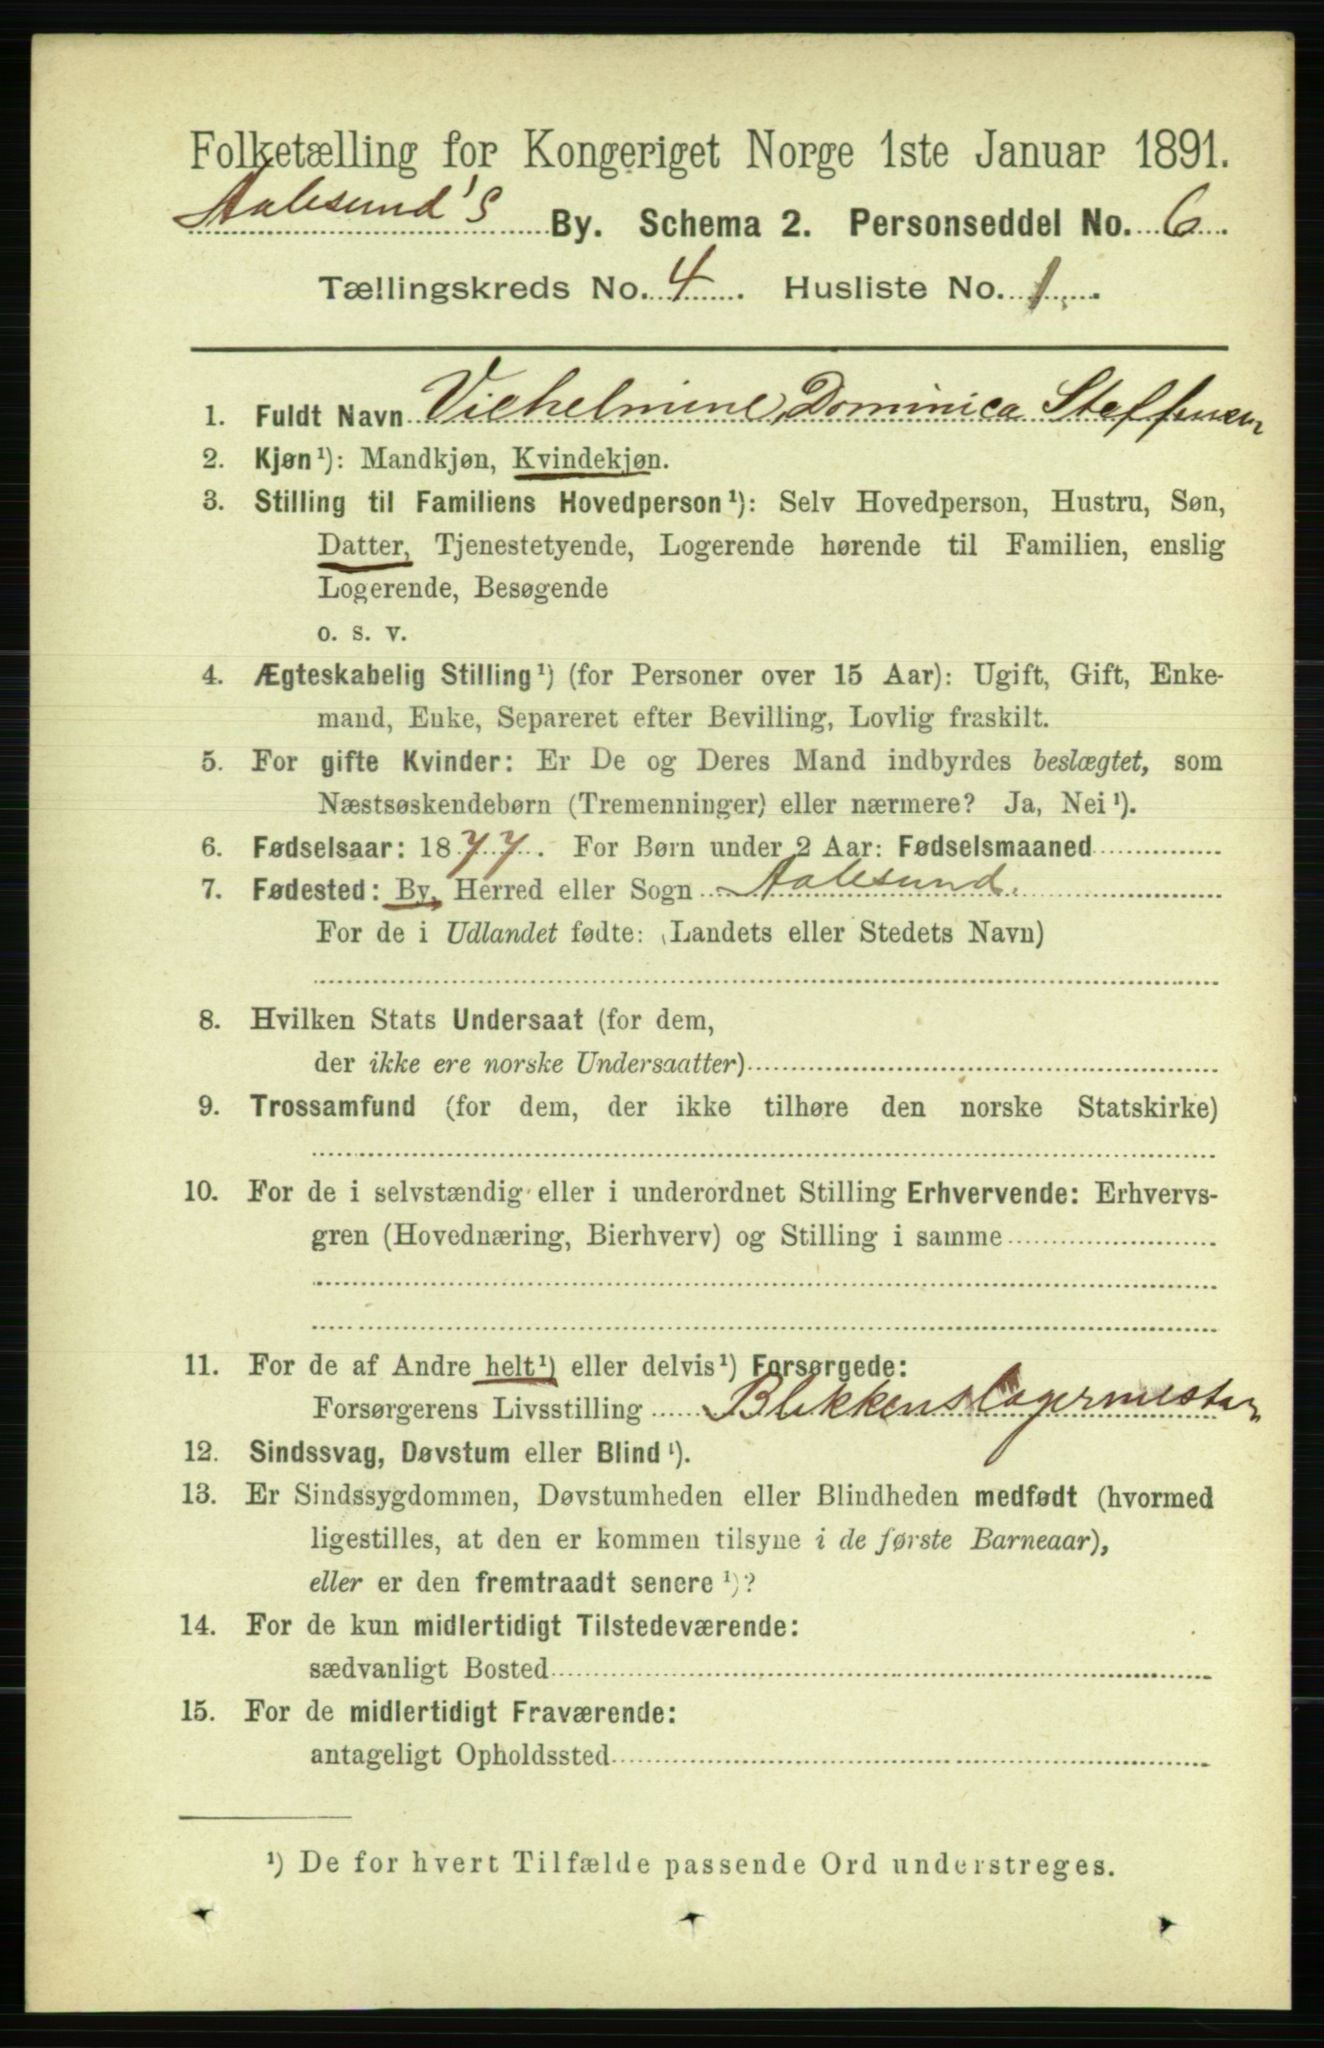 Folketælling for Kongeriget Norge 1ste Januar 1891.
Aalesund's By. Schema 2. Personseddel No. 6
Tællingskreds No. 4 Husliste No. 1.
1. Fuldt Navn Vilhelmine Dominica Steffensen
2. Kjøn¹): Mandkjøn, Kvindekjøn.
3. Stilling til Familiens Hovedperson¹): Selv Hovedperson, Hustru, Søn,
Datter, Tjenestetyende, Logerende hørende til Familien, enslig
Logerende, Besøgende
o. s. v.
4. Ægteskabelig Stilling¹) (for Personer over 15 Aar): Ugift, Gift, Enke-
mand, Enke, Separeret efter Bevilling, Lovlig fraskilt.
5. For gifte Kvinder: Er De og Deres Mand indbyrdes beslægtet, som
Næstsøskendebørn (Tremenninger) eller nærmere? Ja, Nei¹).
6. Fødselsaar: 1877. For Børn under 2 Aar: Fødselsmaaned
7. Fødested: By, Herred eller Sogn Aalesund.
For de i Udlandet fødte: (Landets eller Stedets Navn)
8. Hvilken Stats Undersaat (for dem,
der ikke ere norske Undersaatter)
9. Trossamfund (for dem, der ikke tilhøre den norske Statskirke)
10. For de i selvstændig eller i underordnet Stilling Erhvervende: Erhvervs-
gren (Hovednæring, Bierhverv) og Stilling i samme
11. For de af Andre helt¹) eller delvis¹) Forsørgede:
Forsørgerens Livsstilling Blikkenslagermester
12. Sindssvag, Døvstum eller Blind¹).
13. Er Sindssygdommen, Døvstumheden eller Blindheden medfødt (hvormed
ligestilles, at den er kommen tilsyne i de første Barneaar),
eller er den fremtraadt senere¹)?
14. For de kun midlertidigt Tilstedeværende:
sædvanligt Bosted
15. For de midlertidigt Fraværende:
antageligt Opholdssted
¹) De for hvert Tilfælde passende Ord understreges.